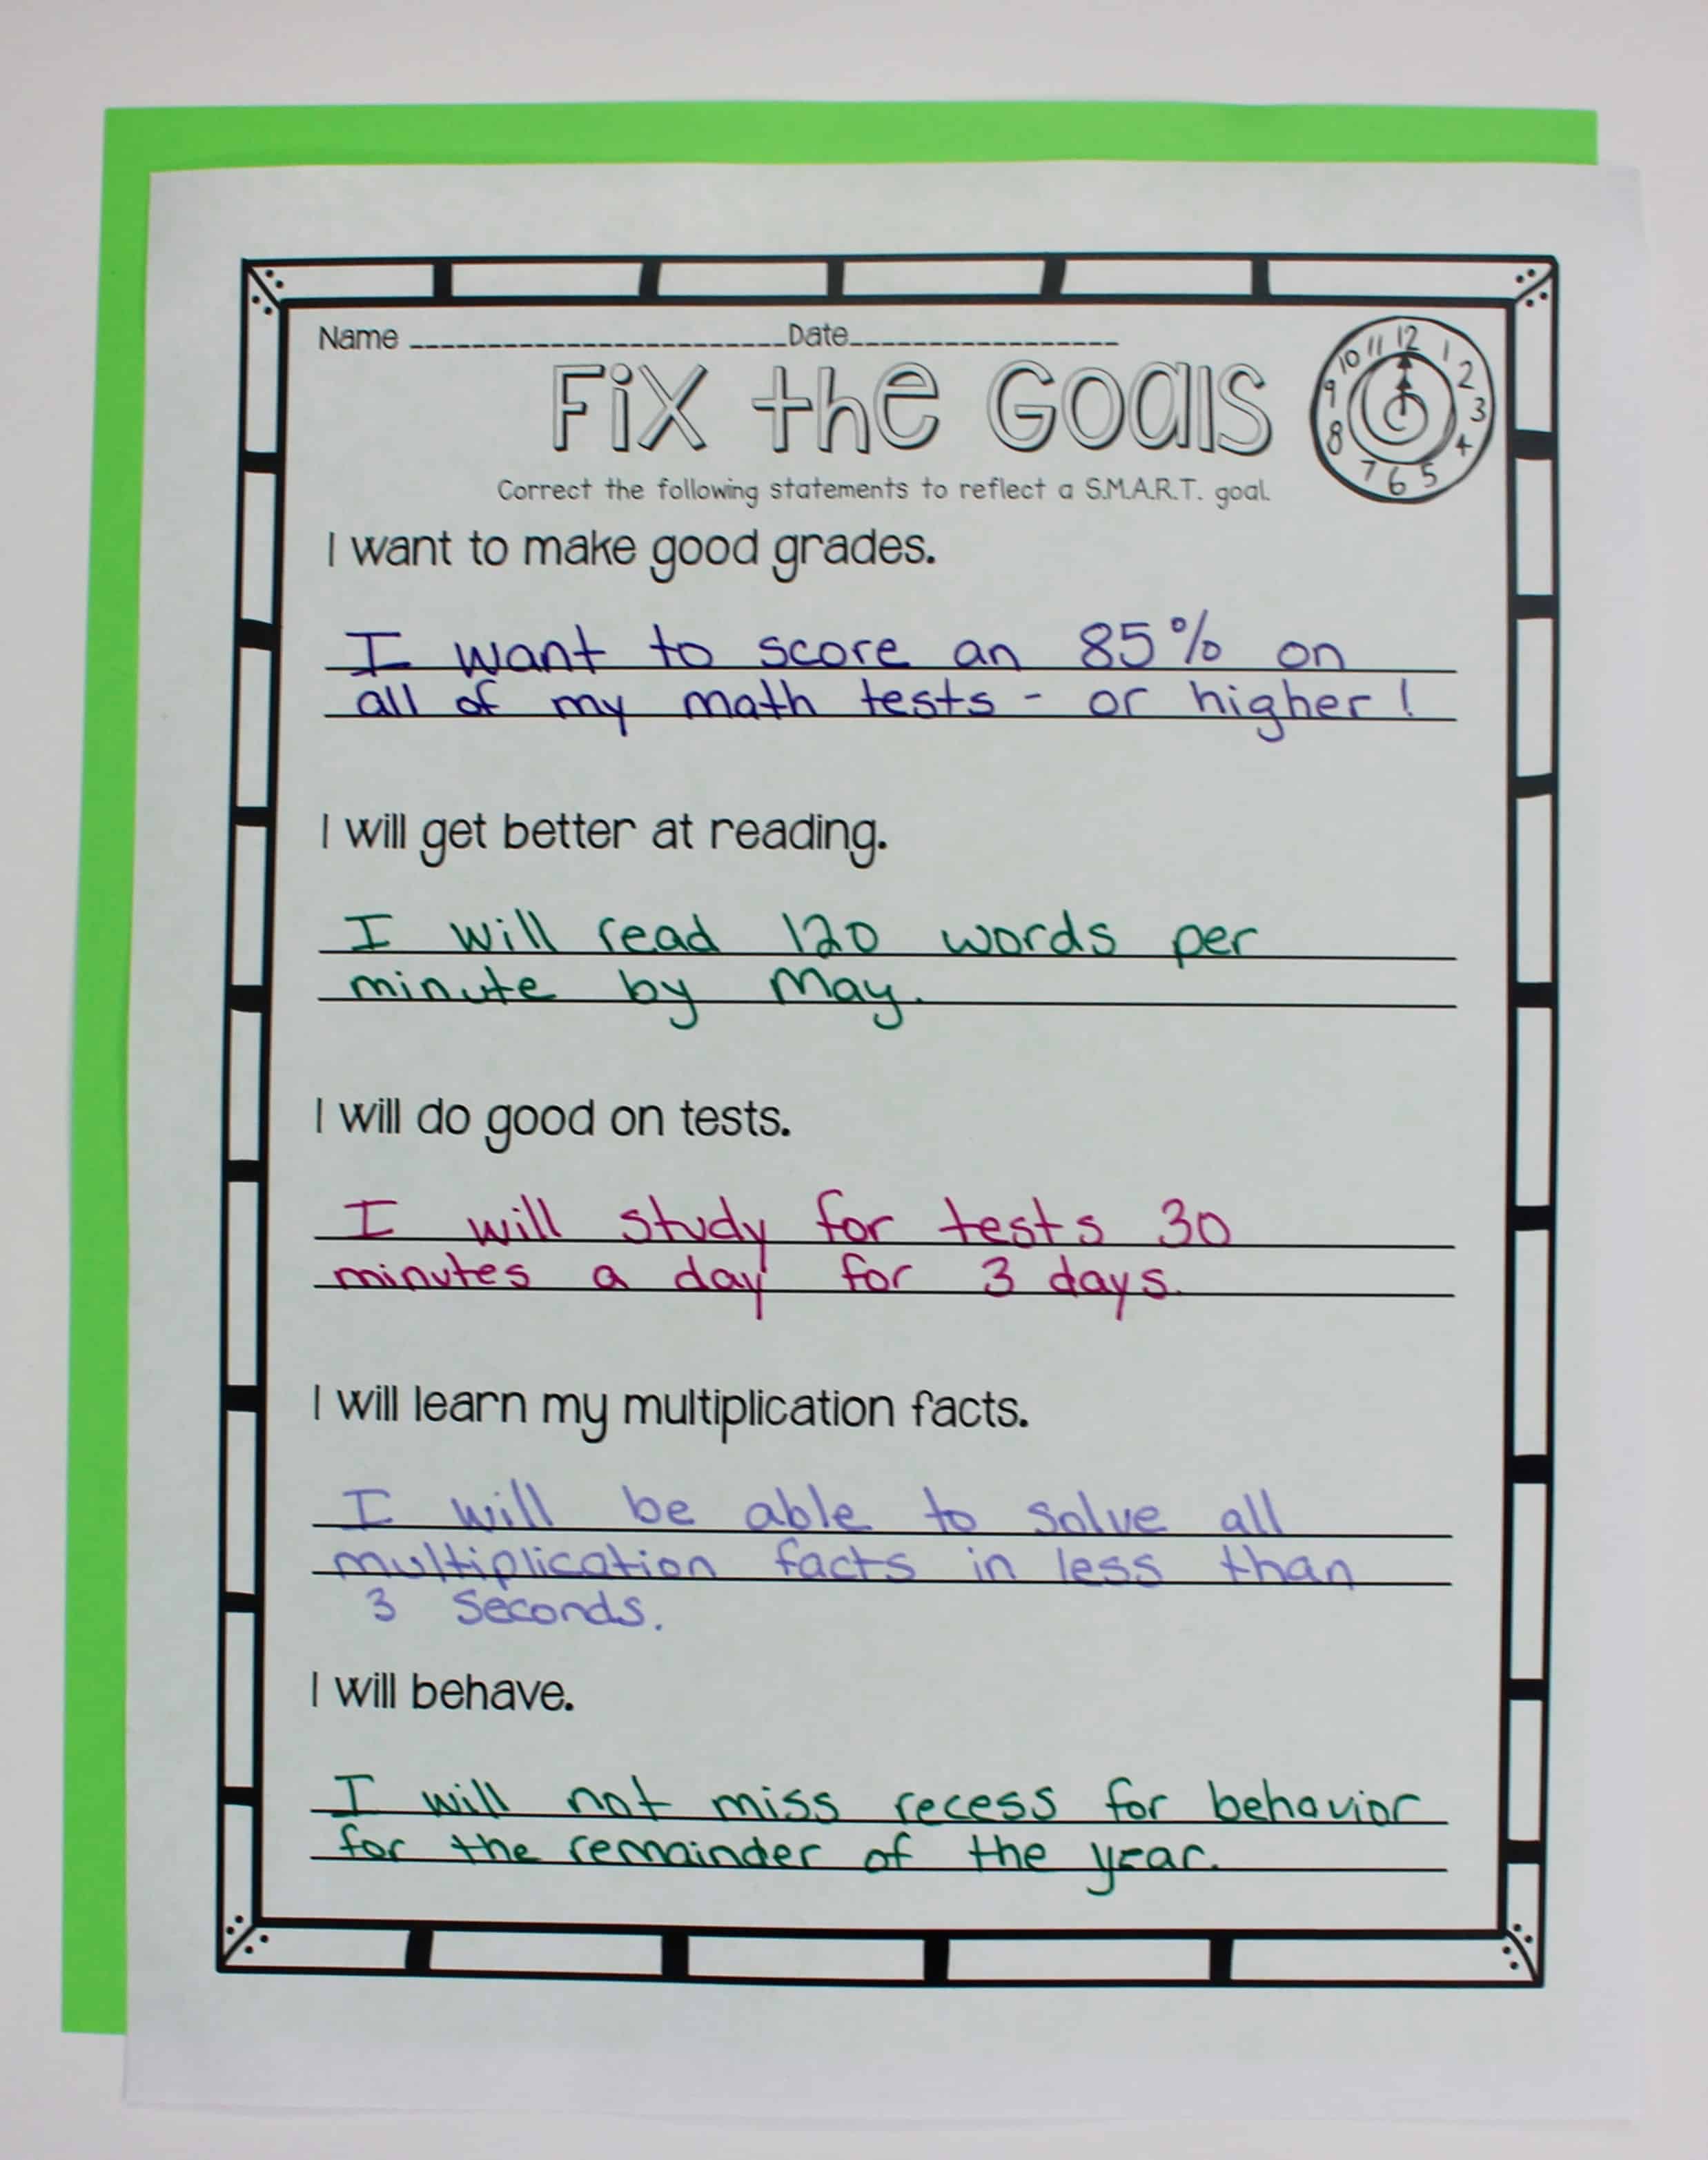 Name ________________ Date________________
Fix the Goals
Correct the following statements to reflect a S.M.A.R.T. goal.
12
11 1
10 2
9 3
8 4
7 6 5
I want to make good grades.
I want to score an 85% on
all of my math tests - or higher!
I will get better at reading.
I will read 120 words per
minute by May.
I will do good on tests.
I will study for tests 30
minutes a day for 3 days.
I will learn my multiplication facts.
I will be able to solve all
multiplication facts in less than
3 seconds.
I will behave.
I will not miss recess for behavior
for the remainder of the year.